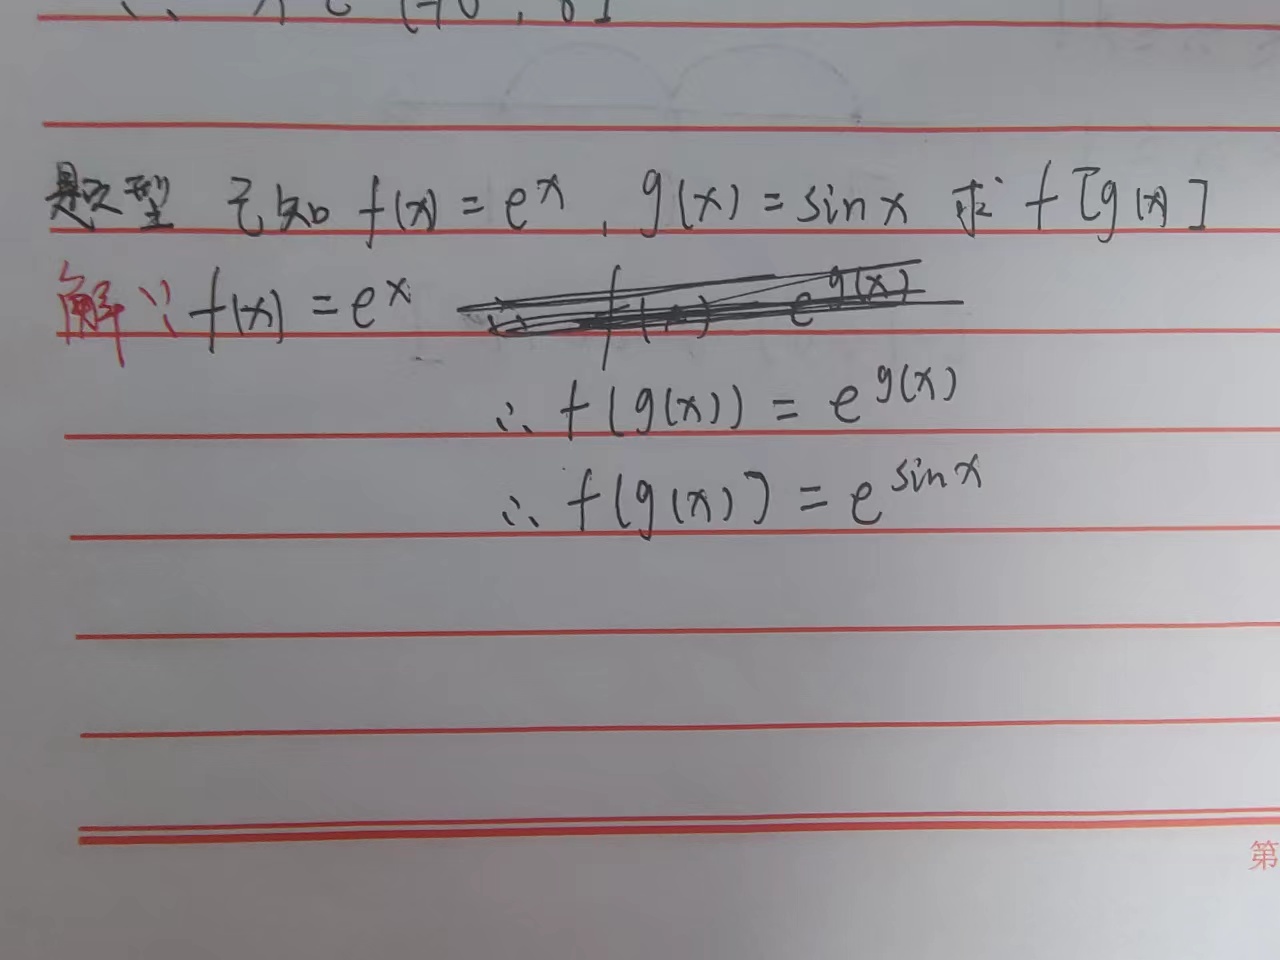 题型 已知 f(x) = e^x , g(x) = sin x 求 f[g(x)]
解 ∵ f(x) = e^x
∴ f(g(x)) = e^g(x)
∴ f[g(x)] = e^sin x
第